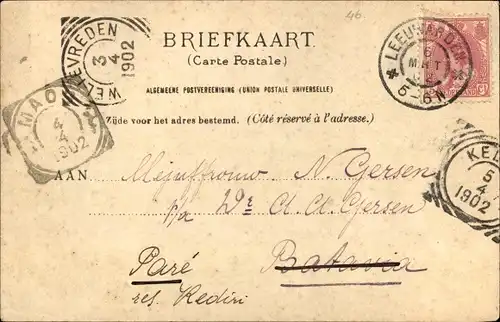 46
WELTEVREDEN
3
4
1902
BRIEFKAART.
(Carte Postale.)
LEEUWARDEN
6
MRT
5-6N
ALGEMEENE POSTVEREENIGING (UNION POSTALE UNIVERSELLE)
Zijde voor het adres bestemd. (Côté réservé à l'adresse.)
MAO
4
4
1902
KE
5
4
1902
AAN Mejuffrouw N. Gersen
p/a Dr A. A. Gersen
Paré Batavia
res. Kediri